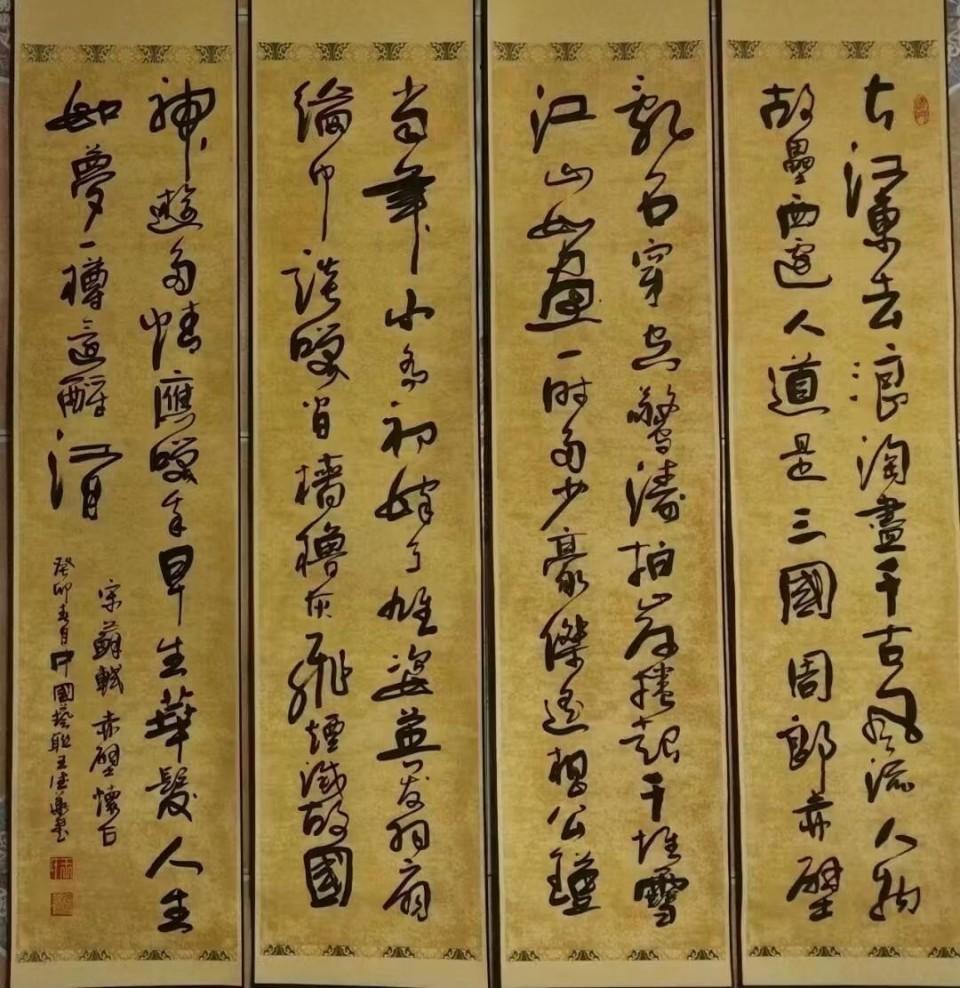 大江東去浪淘盡千古風流人物
故壘西邊人道是三國周郎赤壁
亂石穿空驚濤拍岸捲起千堆雪
江山如畫一時多少豪傑遙想公瑾
當年小喬初嫁了雄姿英發羽扇
綸巾談笑間檣櫓灰飛煙滅故國
神遊多情應笑我早生華髮人生
如夢一樽還酹江月
宋蘇軾赤壁懷古
癸卯春月中國藝聯王德書